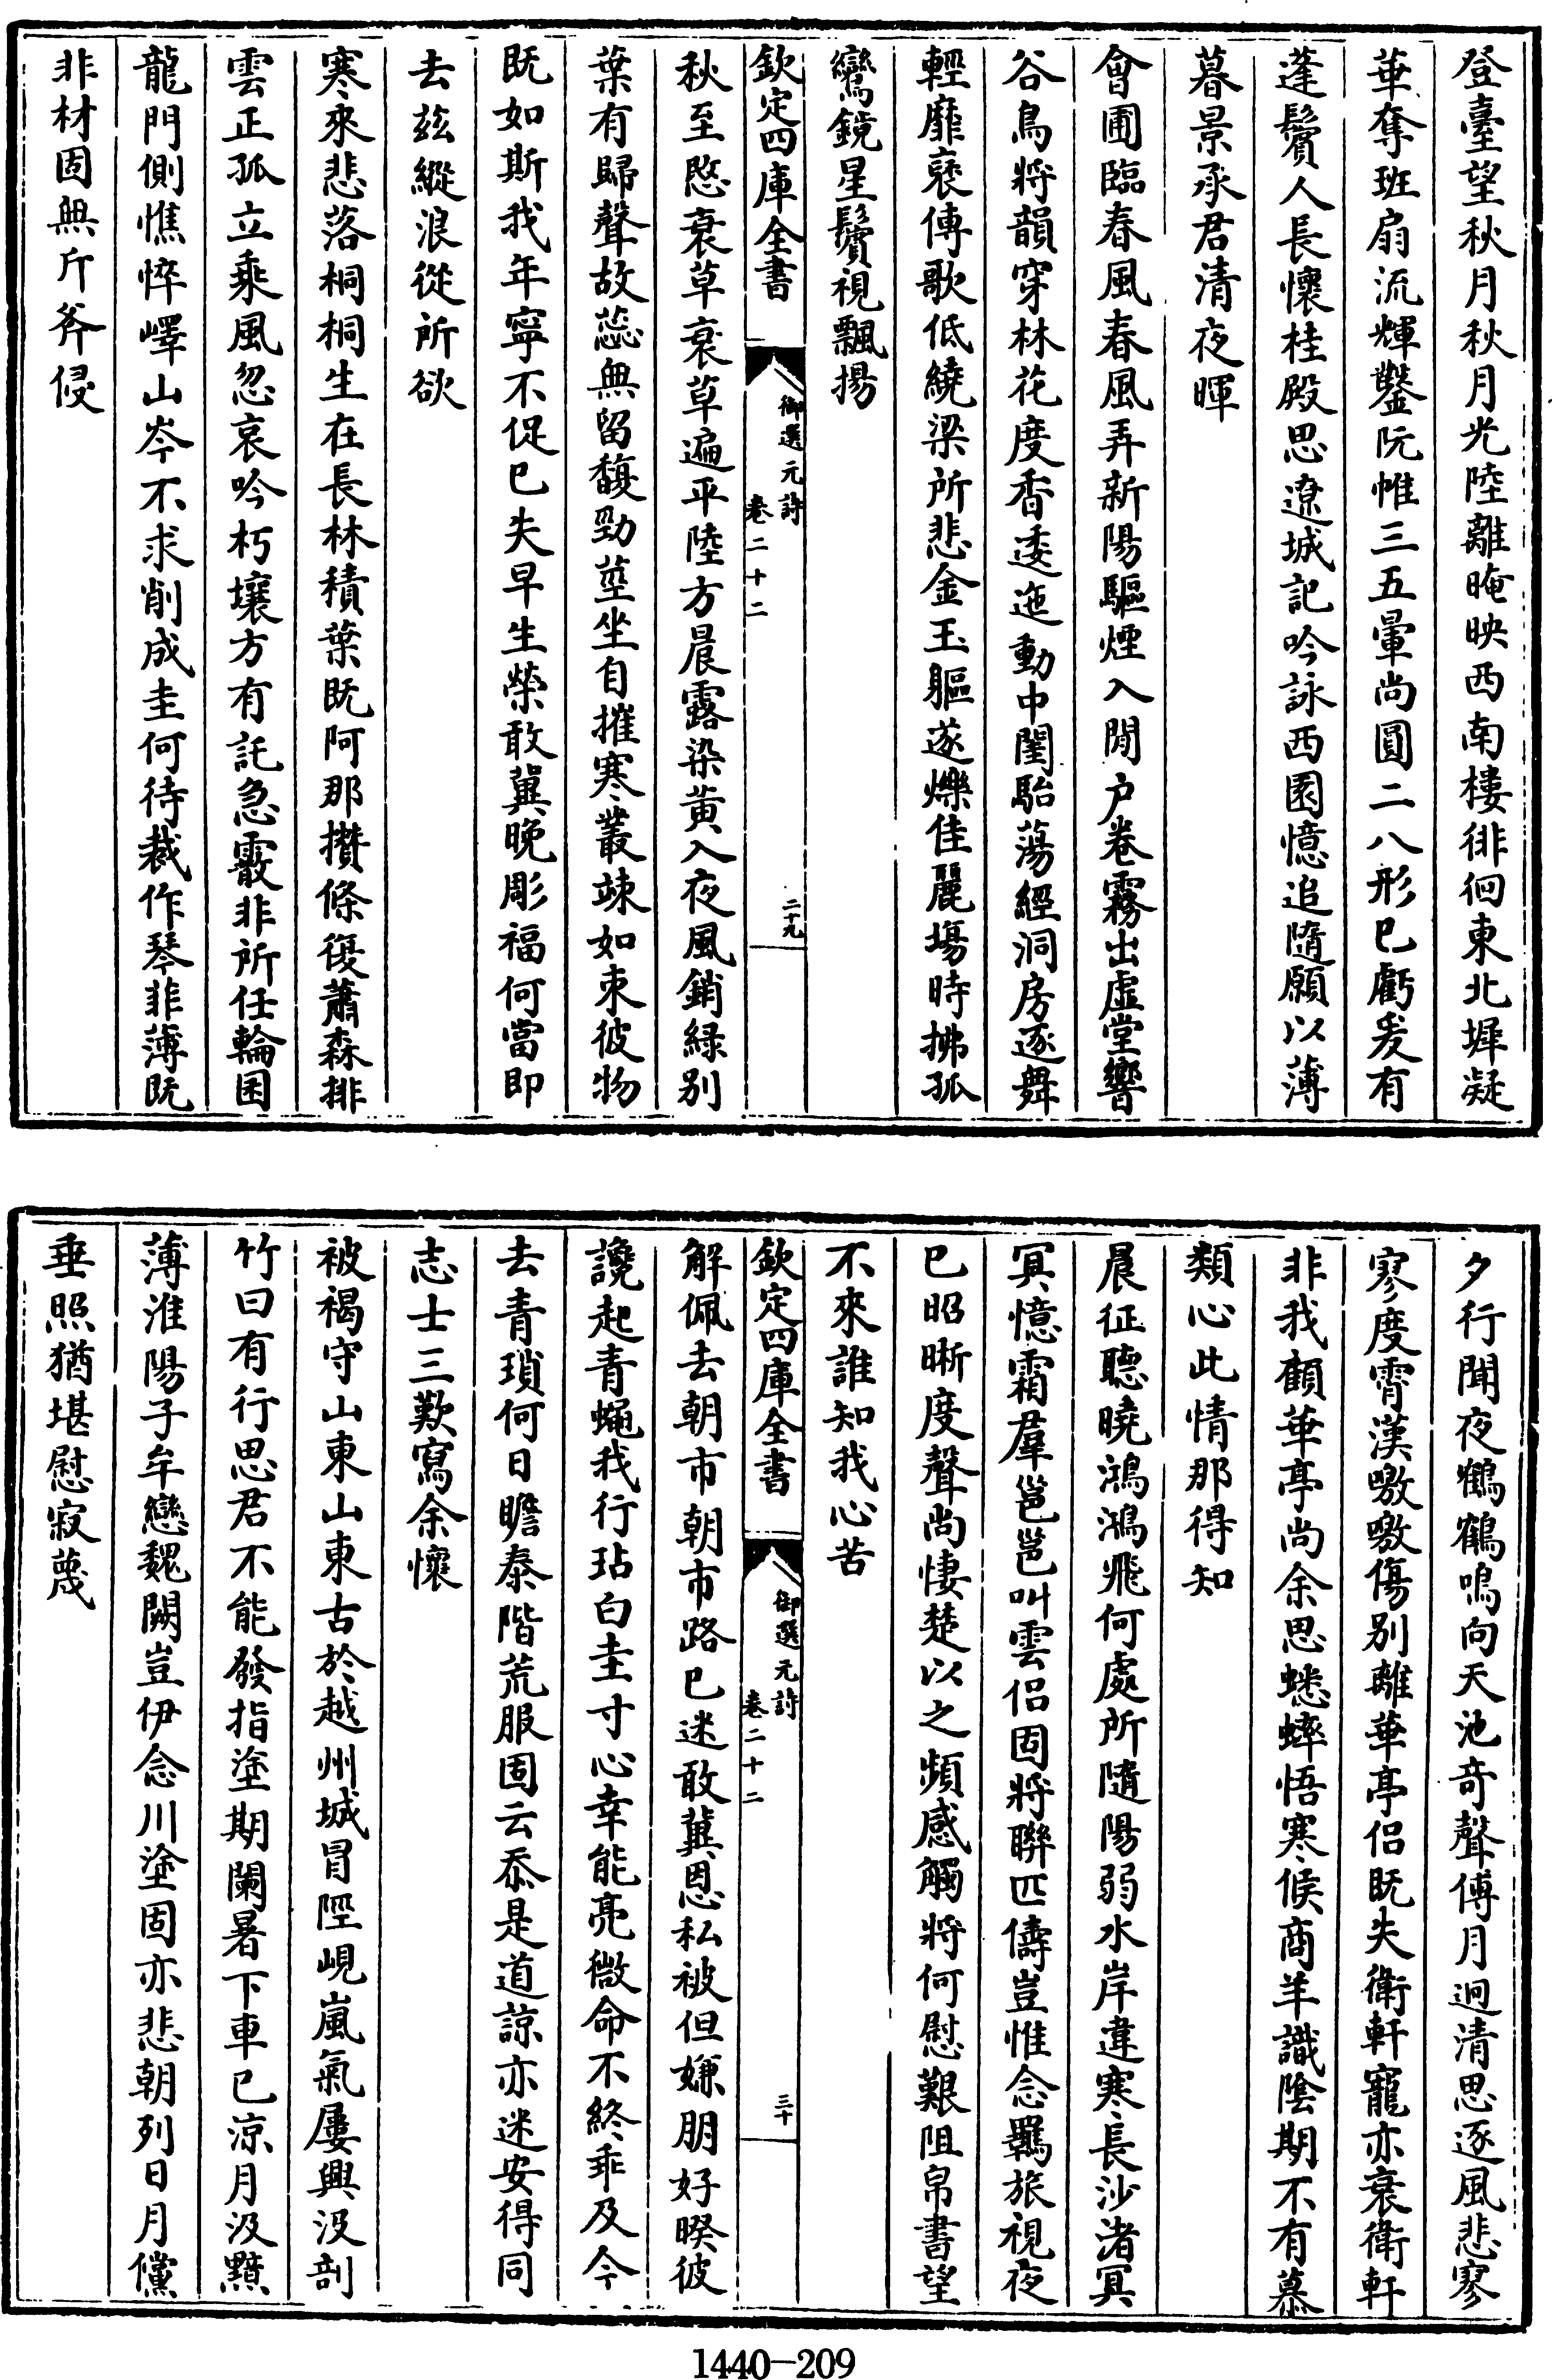 登臺望秋月秋月光陸離晻映西南樓徘徊東北墀凝
華奪班扇流輝鑿阮帷三五暈尚圓二八形已虧爰有
蓬鬢人長懷桂殿思遼城記吟詠西園憶追隨願以薄
暮景承君清夜暉
會圃臨春風春風弄新陽驅煙入閒户卷霧出虛堂響
谷鳥將韻穿林花度香逶迤動中閨駘蕩經洞房逐舞
輕靡袤傳歌低繞梁所悲金玉軀遂爍佳麗塲時拂孤
鸞鏡星鬢視飄揚
欽定四庫全書
御選元詩
卷二十二
二十九
秋至愍衰草衰草遍平陸方晨露染黄入夜風銷緑别
葉有歸聲故蕊無留馥勁莖坐自摧寒叢竦如束彼物
既如斯我年寧不促已失早生榮敢冀晚彫福何當即
去兹縱浪從所欲
寒來悲落桐桐生在長林積葉既阿那攢條復蕭森排
雲正孤立乘風忽哀吟朽壤方有託急霰非所任輪囷
龍門側憔悴嶧山岑不求削成圭何待裁作琴非薄既
非材固無斤斧侵
夕行聞夜鶴鶴鳴向天池奇聲傅月迥清思逐風悲寥
寥度霄漢嗷嗷傷别離華亭侣既失衛軒寵亦衰衛軒
非我顧華亭尚余思蟋蟀悟寒候商羊識陰期不有慕
類心此情那得知
晨征聽曉鴻鴻飛何處所隨陽弱水岸違寒長沙渚冥
冥憶霜羣嗈嗈叫雲侣固將聯匹儔豈惟念羈旅視夜
已昭晰度聲尚悽楚以之頻感觸將何慰艱阻帛書望
不來誰知我心苦
欽定四庫全書
御選元詩
卷二十二
三十
解佩去朝市朝市路已迷敢冀恩私被但嫌朋好暌彼
讒起青蠅我行玷白圭寸心幸能亮微命不終乖及今
去青瑣何日瞻泰階荒服固云忝是道諒亦迷安得同
志士三歎寫余懷
被褐守山東山東古於越州城冒陘峴嵐氣屢興没剖
竹曰有行思君不能發指塗期闌暑下車已涼月汲黯
薄淮陽子牟戀魏闕豈伊念川塗固亦悲朝列日月儻
垂照猶堪慰寂蔑
1440—209